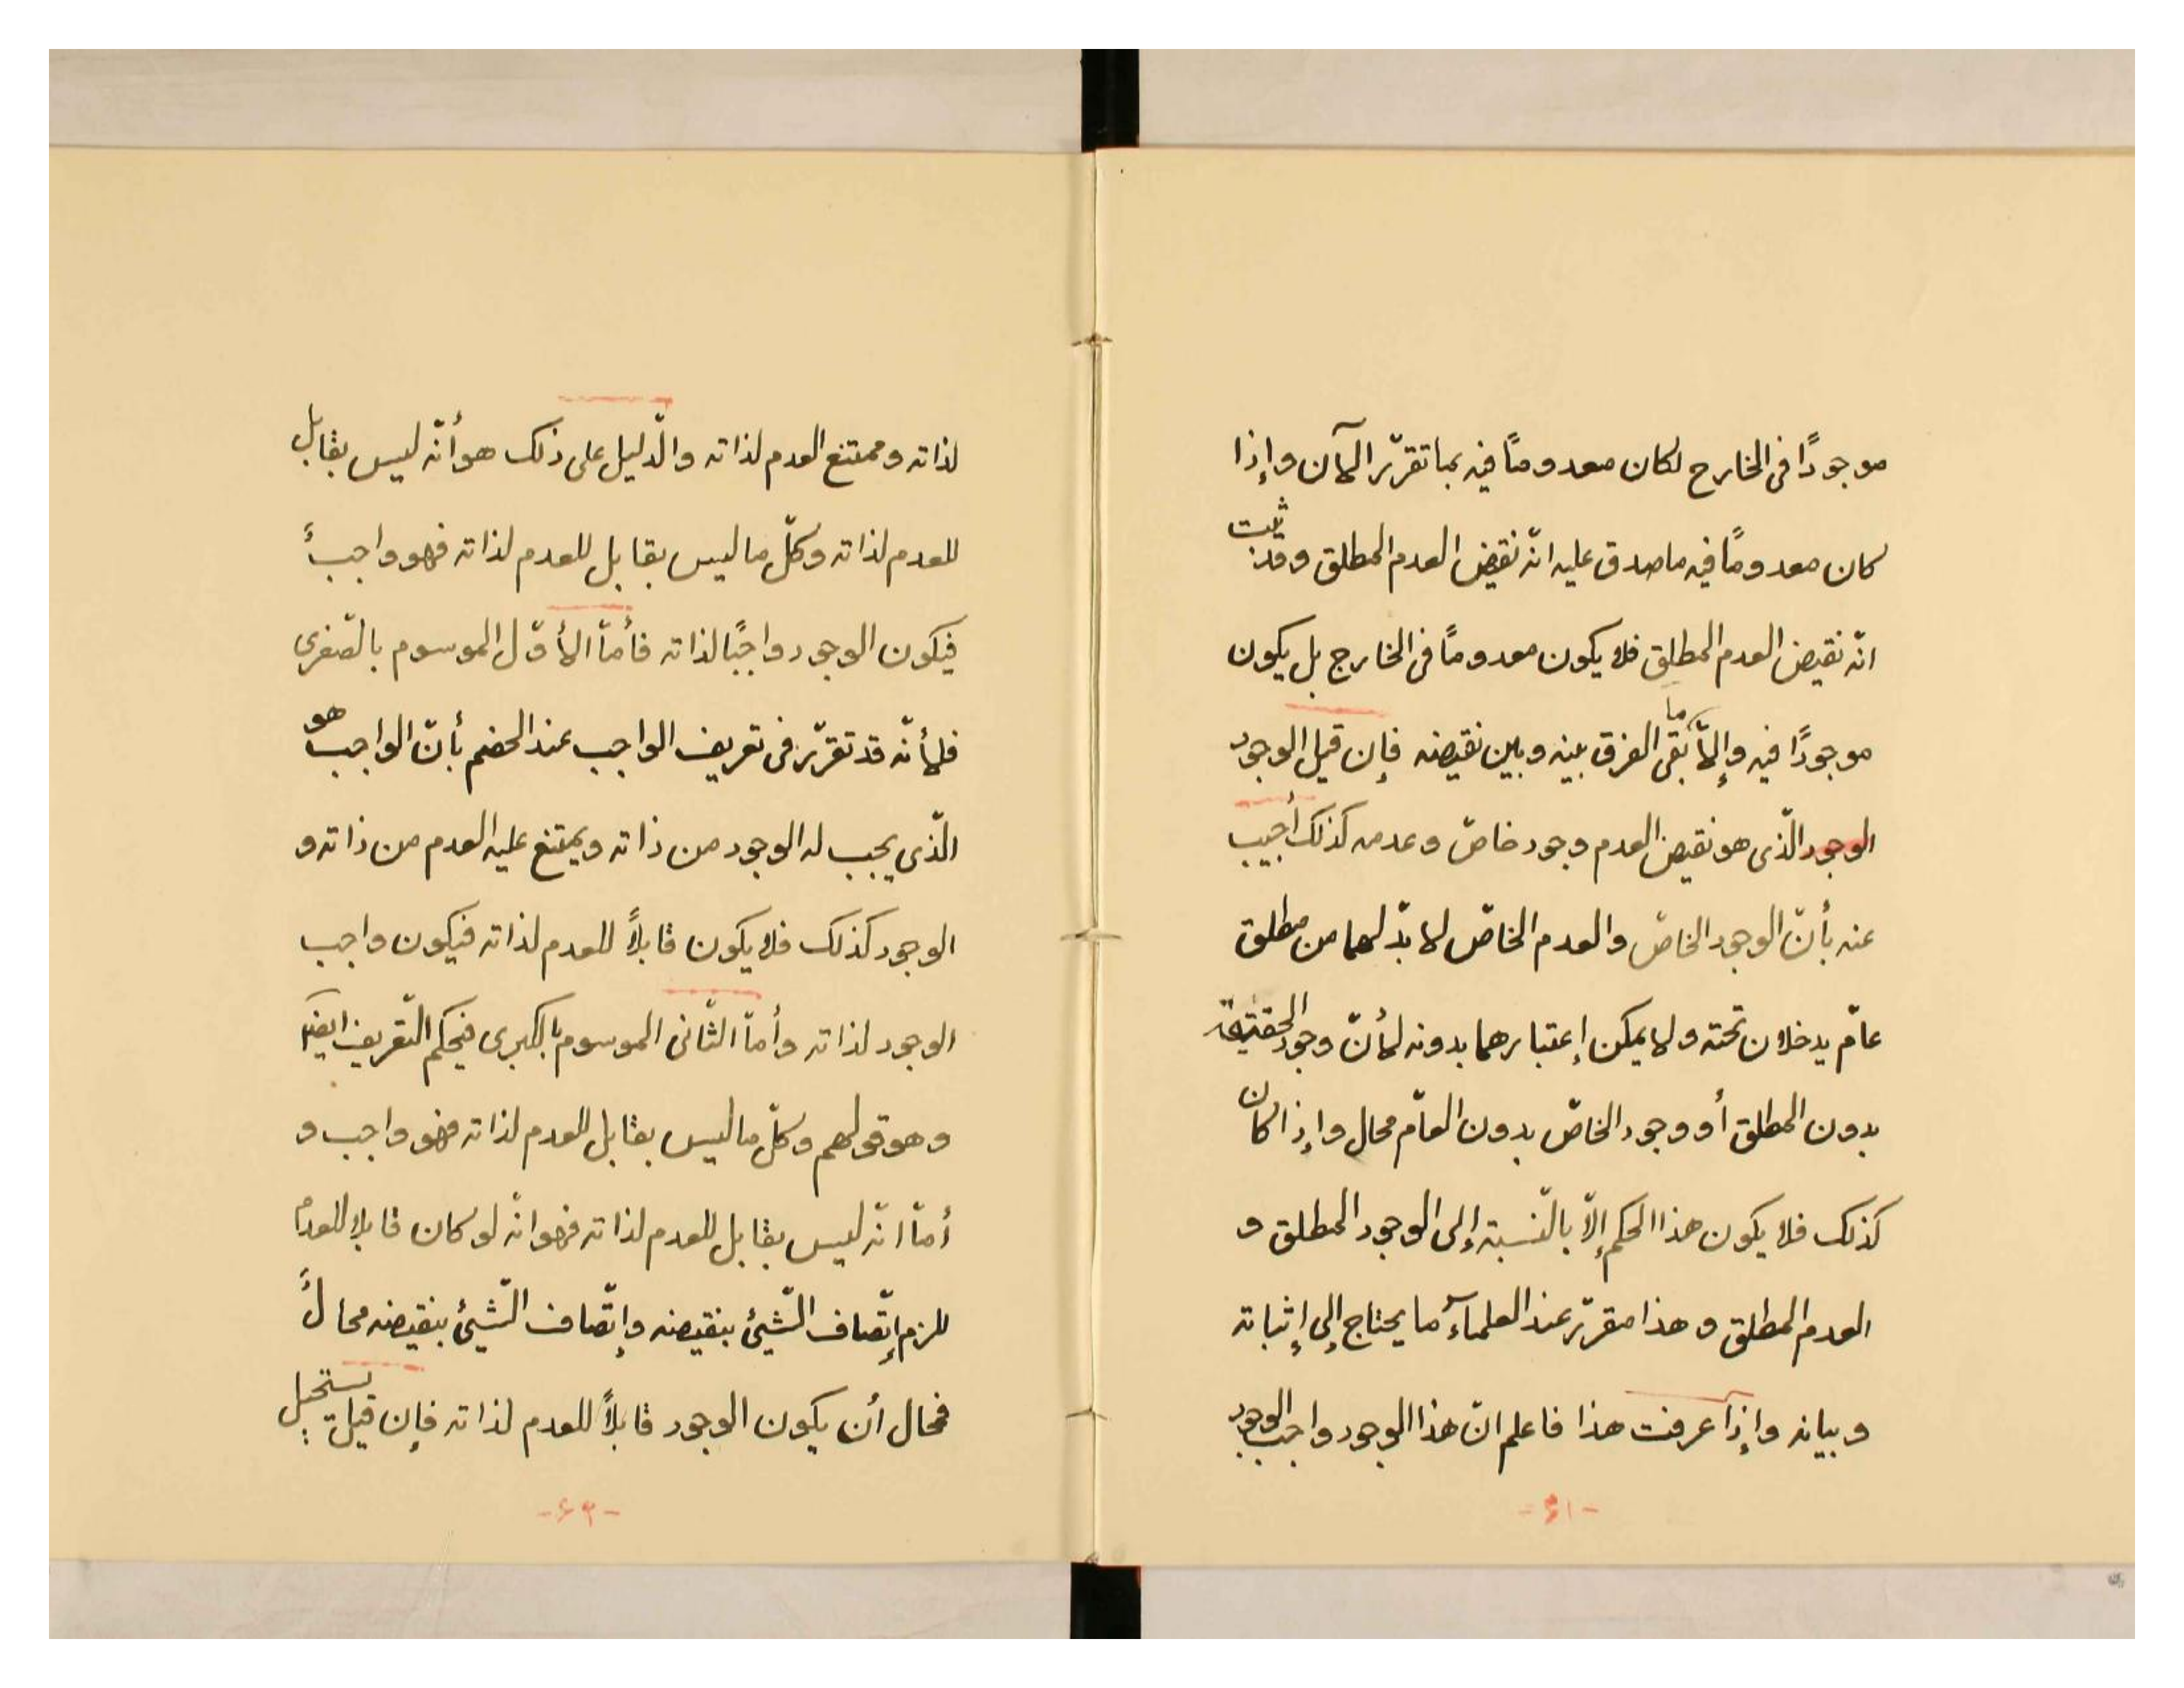 موجودًا فى الخارج لكان معدومًا فيه بما تقرّر الآن وإذا
كان معدومًا فيه ماصدق عليه انّه نقيض العدم المطلق وقد ثبت
انّه نقيض العدم المطلق فلا يكون معدومًا فى الخارج بل يكون
موجودًا فيه وإلاّ ما بقى الفرق بينه وبين نقيضه فإن قيل الوجود
الوجود الّذى هو نقيض العدم وجود خاصّ وعدمه كذلك أجيب
عنه بأنّ الوجود الخاصّ والعدم الخاصّ لا بدّ لهما من مطلق
عامّ يدخلان تحته ولا يمكن إعتبارهما بدونه لأنّ وجود
بدون المطلق أو وجود الخاصّ بدون العامّ محال وإذا كان
كذلك فلا يكون هذا الحكم إلاّ بالنّسبة إلى الوجود المطلق و
العدم المطلق و هذا مقرّر عند العلمآء ما يحتاج إلى إثباته
وبيانه وإذا عرفت هذا فاعلم انّ هذا الوجود واجب الوجود
-۶۱-
لذاته وممتنع العدم لذاته والدّليل على ذلك هو أنّه ليس بقابل
للعدم لذاته وكلّ ما ليس بقابل للعدم لذاته فهو واجبٌ
فيكون الوجود واجبًا لذاته فأمّا الأوّل الموسوم بالصّغرى
فلأنّه قد تقرّر فى تعريف الواجب عند الخصم بأنّ الواجب هو
الّذى يجب له الوجود من ذاته ويمتنع عليه العدم من ذاته و
الوجود كذلك فلا يكون قابلاً للعدم لذاته فيكون واجب
الوجود لذاته وأمّا الثّانى الموسوم بالكبرى فبحكم التّعريف ايضًا
وهو قولهم وكلّ ما ليس بقابل للعدم لذاته فهو واجب و
أمّا انّه ليس بقابل للعدم لذاته فهو انّه لو كان قابلا للعدم
للزم إتّصاف الشّيئ بنقيضه وإتّصاف الشّيئ بنقيضه محالٌ
فمحال أن يكون الوجود قابلاً للعدم لذاته فإن قيل يستحيل
-۶۲-